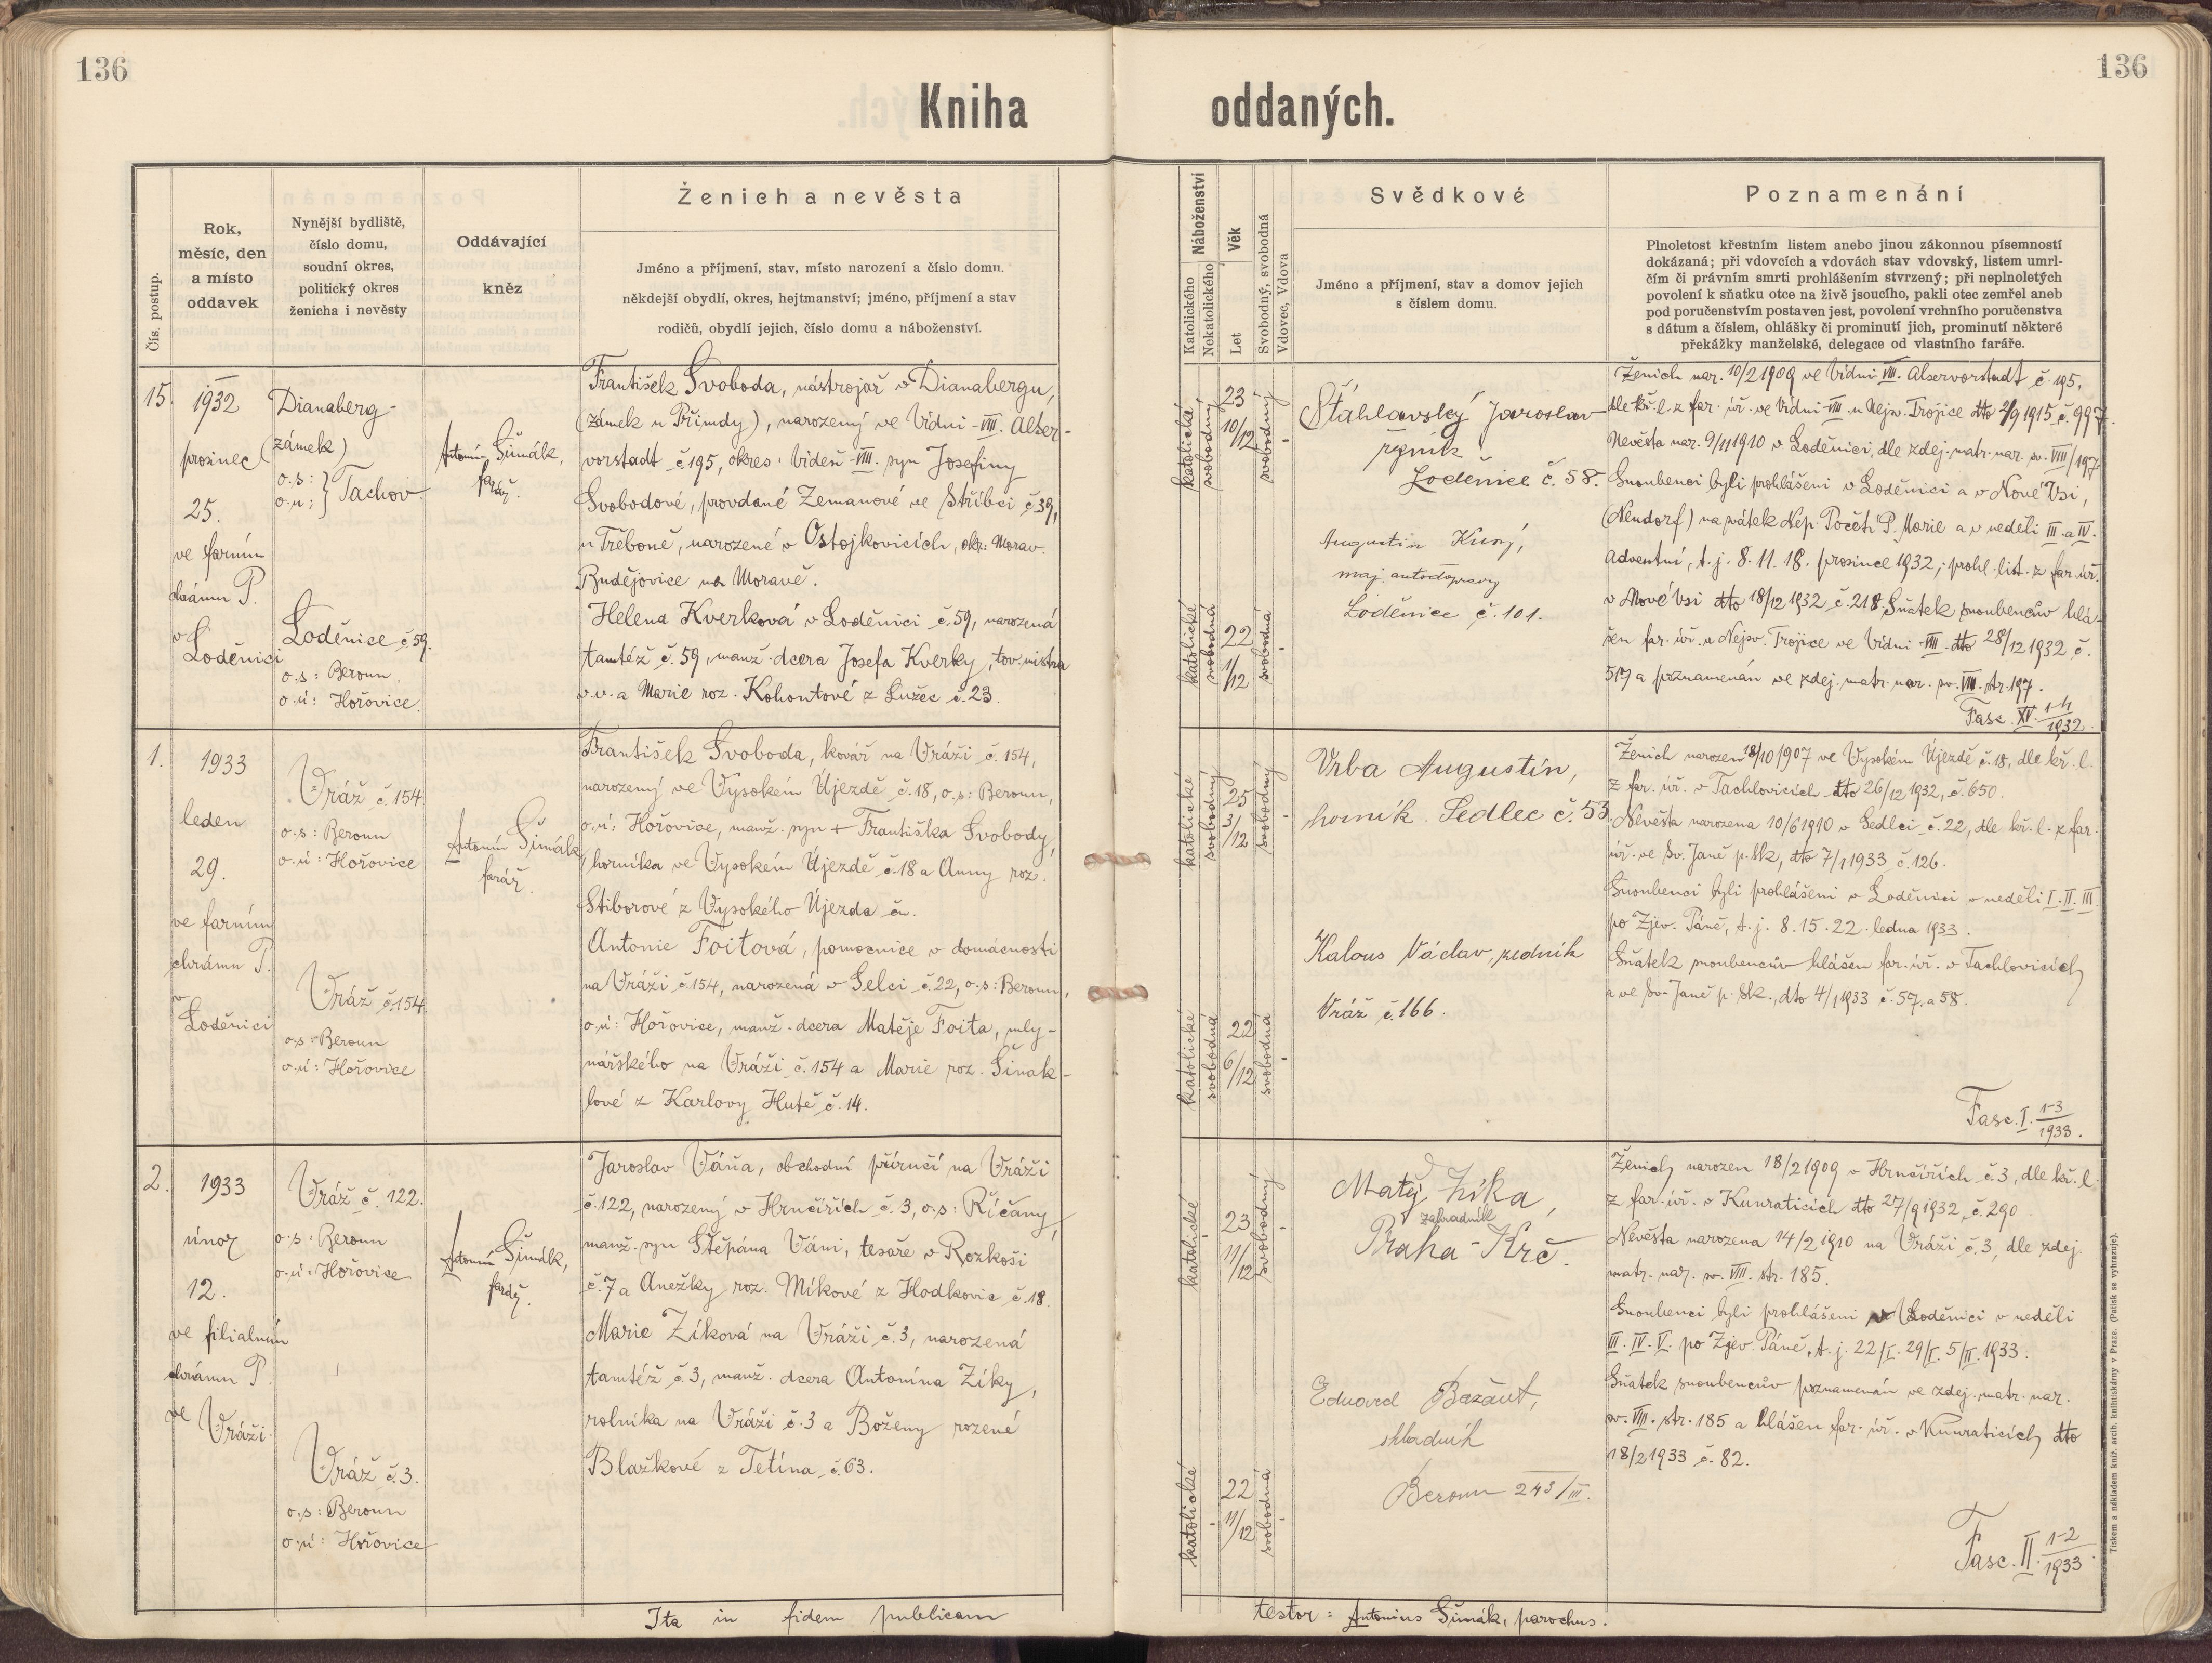 136
136
Kniha oddaných.
Čís. postup.
Rok,
měsíc, den
a místo
oddavek
Nynější bydliště,
číslo domu,
soudní okres,
politický okres
ženicha i nevěsty
Oddávající
kněz
Ženich a nevěsta
Jméno a příjmení, stav, místo narození a číslo domu.
někdejší obydlí, okres, hejtmanství; jméno, příjmení a stav
rodičů, obydlí jejich, číslo domu a náboženství.
Náboženství
Katolického
Nekatolického
Věk
Let
Svobodný, svobodná
Vdovec, Vdova
Svědkové
Jméno a příjmení, stav a domov jejich
s číslem domu.
Poznamenání
Plnoletost křestním listem anebo jinou zákonnou písemností
dokázaná; při vdovcích a vdovách stav vdovský, listem umrl-
čím či právním smrti prohlášením stvrzený; při neplnoletých
povolení k sňatku otce na živě jsoucího, pakli otec zemřel aneb
pod poručenstvím postaven jest, povolení vrchního poručenstva
s dátum a číslem, ohlášky či prominutí jich, prominutí některé
překážky manželské, delegace od vlastního faráře.
15.
1932
prosinec
25.
ve farním
chrámu P.
v
Loděnici
Dianaberg-
(zámek)
o.s:
o.ú: } Tachov.
Loděnice č 59.
o.s: Beroun.
o.ú: Hořovice.
Antonín Šimák,
farář.
František Svoboda, nástrojař v Dianabergu,
(zámek u Přimdy), narozený ve Vídni-VIII. Alser-
vorstadt č195, okres: Vídeň-VIII. syn Josefiny
Svobodové, provdané Zemanové ve Stříbci č39,
u Třeboně, narozené v Ostojkovicích, okr: Morav.
Budějovice na Moravě.
Helena Kverková v Loděnici č.59, narozená
tamtéž č.59, manž. dcera Josefa Kverky, tov. mistra
v.v. a Marie roz. Kohoutové z Lužec č.23.
katolická
svobodný
23
10/12
svobodný
-
katolické
svobodná
22
1/12
svobodná
-
Šťáhlavský Jaroslav
řezník
Loděnice č. 58.
Augustin Kusý,
maj. autodopravy
Loděnice č.101.
Ženich nar. 10/2 1909 ve Vídni VIII. Alservorstadt č.195,
dle kř.l. z far. úř. ve Vídni-VIII. u Nejsv. Trojice dto 2/9 1915 č.997.
Nevěsta nar. 9/11 1910 v Loděnici, dle zdej. matr. nar. sv. VIII/197
Snoubenci byli prohlášeni v Loděnici a v Nové Vsi,
(Neudorf) na svátek Nep. Početí P. Marie a v neděli III. a IV.
Adventní, t.j. 8. 11. 18. prosince 1932; prohl. list. z far. úř.
v Nové Vsi dto 18/12 1932 č.218. Sňatek snoubencův hlá-
šen far. úř. u Nejsv. Trojice ve Vídni-VIII. dto 28/12 1932 č.
517 a poznamenán ve zdej. matr. nar. sv. VIII. str.197.
Fasc. XV. 1-4/1932.
1.
1933
leden
29.
ve farním
chrámu P.
v
Loděnici
Vráž č.154
o.s: Beroun
o.ú: Hořovice
Vráž č.154
o.s: Beroun
o.ú: Hořovice
Antonín Šimák,
farář.
František Svoboda, kovář na Vráži č. 154,
narozený ve Vysokém Újezdě č.18, o.s: Beroun,
o.ú: Hořovice, manž. syn + Františka Svobody,
horníka ve Vysokém Újezdě č.18 a Anny roz.
Stiborové z Vysokého Újezda č..
Antonie Foitová, pomocnice v domácnosti
na Vráži č.154, narozená v Selci č.22, o.s: Beroun,
o.ú: Hořovice, manž. dcera Matěje Foita, mly-
nářského na Vráži č.154 a Marie roz. Šinak-
lové z Karlovy Hutě č.14.
katolické
svobodný
25
3/12
svobodný
-
katolické
svobodná
22
6/12
svobodná
-
Vrba Augustin,
horník. Sedlec č.53
Kalous Václav, zedník
Vráž č.166.
Ženich narozen 18/10 1907 ve Vysokém Újezdě č.18, dle kř.l.
z far. úř. v Tachlovicích dto 26/12 1932, č.650.
Nevěsta narozena 10/6 1910 v Sedlci č.22, dle kř.l. z far.
úř. ve Sv. Janě p. Sk, dto 7/1 1933 č.126.
Snoubenci byli prohlášeni v Loděnici v neděli I. II. III.
po Zjev. Páně, t.j. 8. 15. 22. ledna 1933.
Sňatek snoubencův hlášen far. úř. v Tachlovicích
a ve Sv. Janě p. Sk., dto 4/1 1933 č.57. a 58.
Fasc. I. 1-3/1933.
2.
1933
únor
12.
ve filialním
chrámu P.
ve
Vráži.
Vráž č. 122.
o.s: Beroun
o.ú: Hořovice
Vráž č.3.
o.s: Beroun
o.ú: Hořovice
Antonín Šimák,
farář.
Jaroslav Váňa, obchodní příručí na Vráži
č.122, narozený v Hrnčířích č.3, o.s: Říčany,
manž. syn Štěpána Váni, tesaře v Rozkoši
č.7 a Anežky roz. Míkové z Hodkovic č.18.
Marie Zíková na Vráži č.3, narozená
tamtéž č.3, manž. dcera Antonína Zíky,
rolníka na Vráži č.3 a Boženy rozené
Blažkové z Tetína č.63.
katolické
-
23
11/12
svobodný
-
katolické
-
22
11/12
svobodná
-
Matěj Zíka,
zahradník
Praha-Krč.
Eduard Bažant,
skladník
Beroun 243/III.
Ženich narozen 18/2 1909 v Hrnčířích č.3, dle kř.l.
z far. úř. v Kunraticích dto 27/9 1932, č.290.
Nevěsta narozena 14/2 1910 na Vráži č.3, dle zdej.
matr. nar. sv. VIII. str. 185.
Snoubenci byli prohlášeni v Loděnici v neděli
III. IV. V. po Zjev. Páně, t.j. 22/I. 29/I. 5/II. 1933.
Sňatek snoubencův poznamenán ve zdej. matr. nar.
sv. VIII. str. 185 a hlášen far. úř. v Kunraticích dto
18/2 1933 č. 82.
Fasc. II. 1-2/1933.
Ita in fidem publicam testor: Antonius Šimák, parochus.
Tiskem a nákladem kníž. arcib. knihtiskárny v Praze. (Patisk se vyhrazuje).